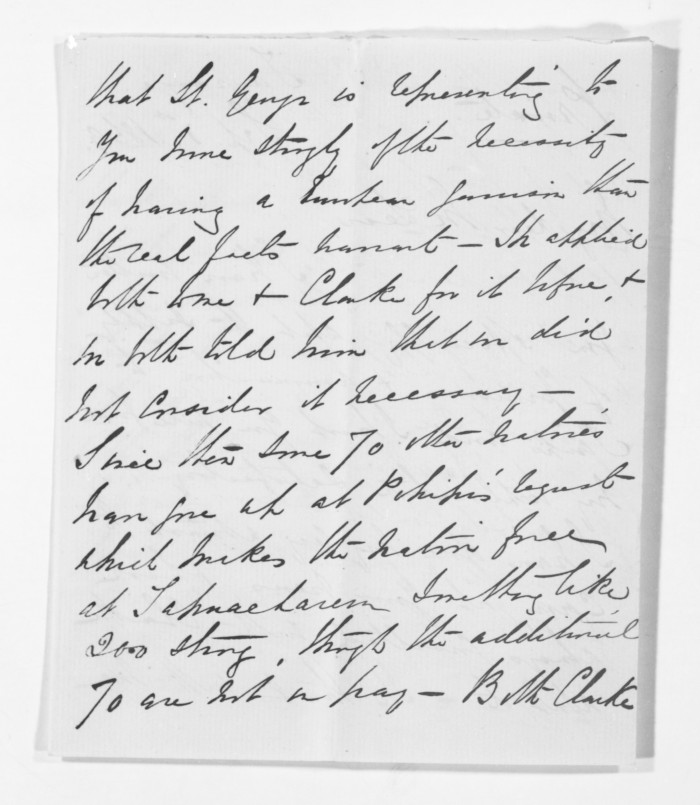 that St. George is representing to
you more strongly of the necessity
of having a European garrison than
the real facts warrant — He applied
both to me & Clarke for it before, &
we both told him that we did
not consider it necessary —
Since then some 70 other natives
have gone up at request
which makes the native force
at something like
200 strong, though the additional
70 are not in pay — Both Clarke